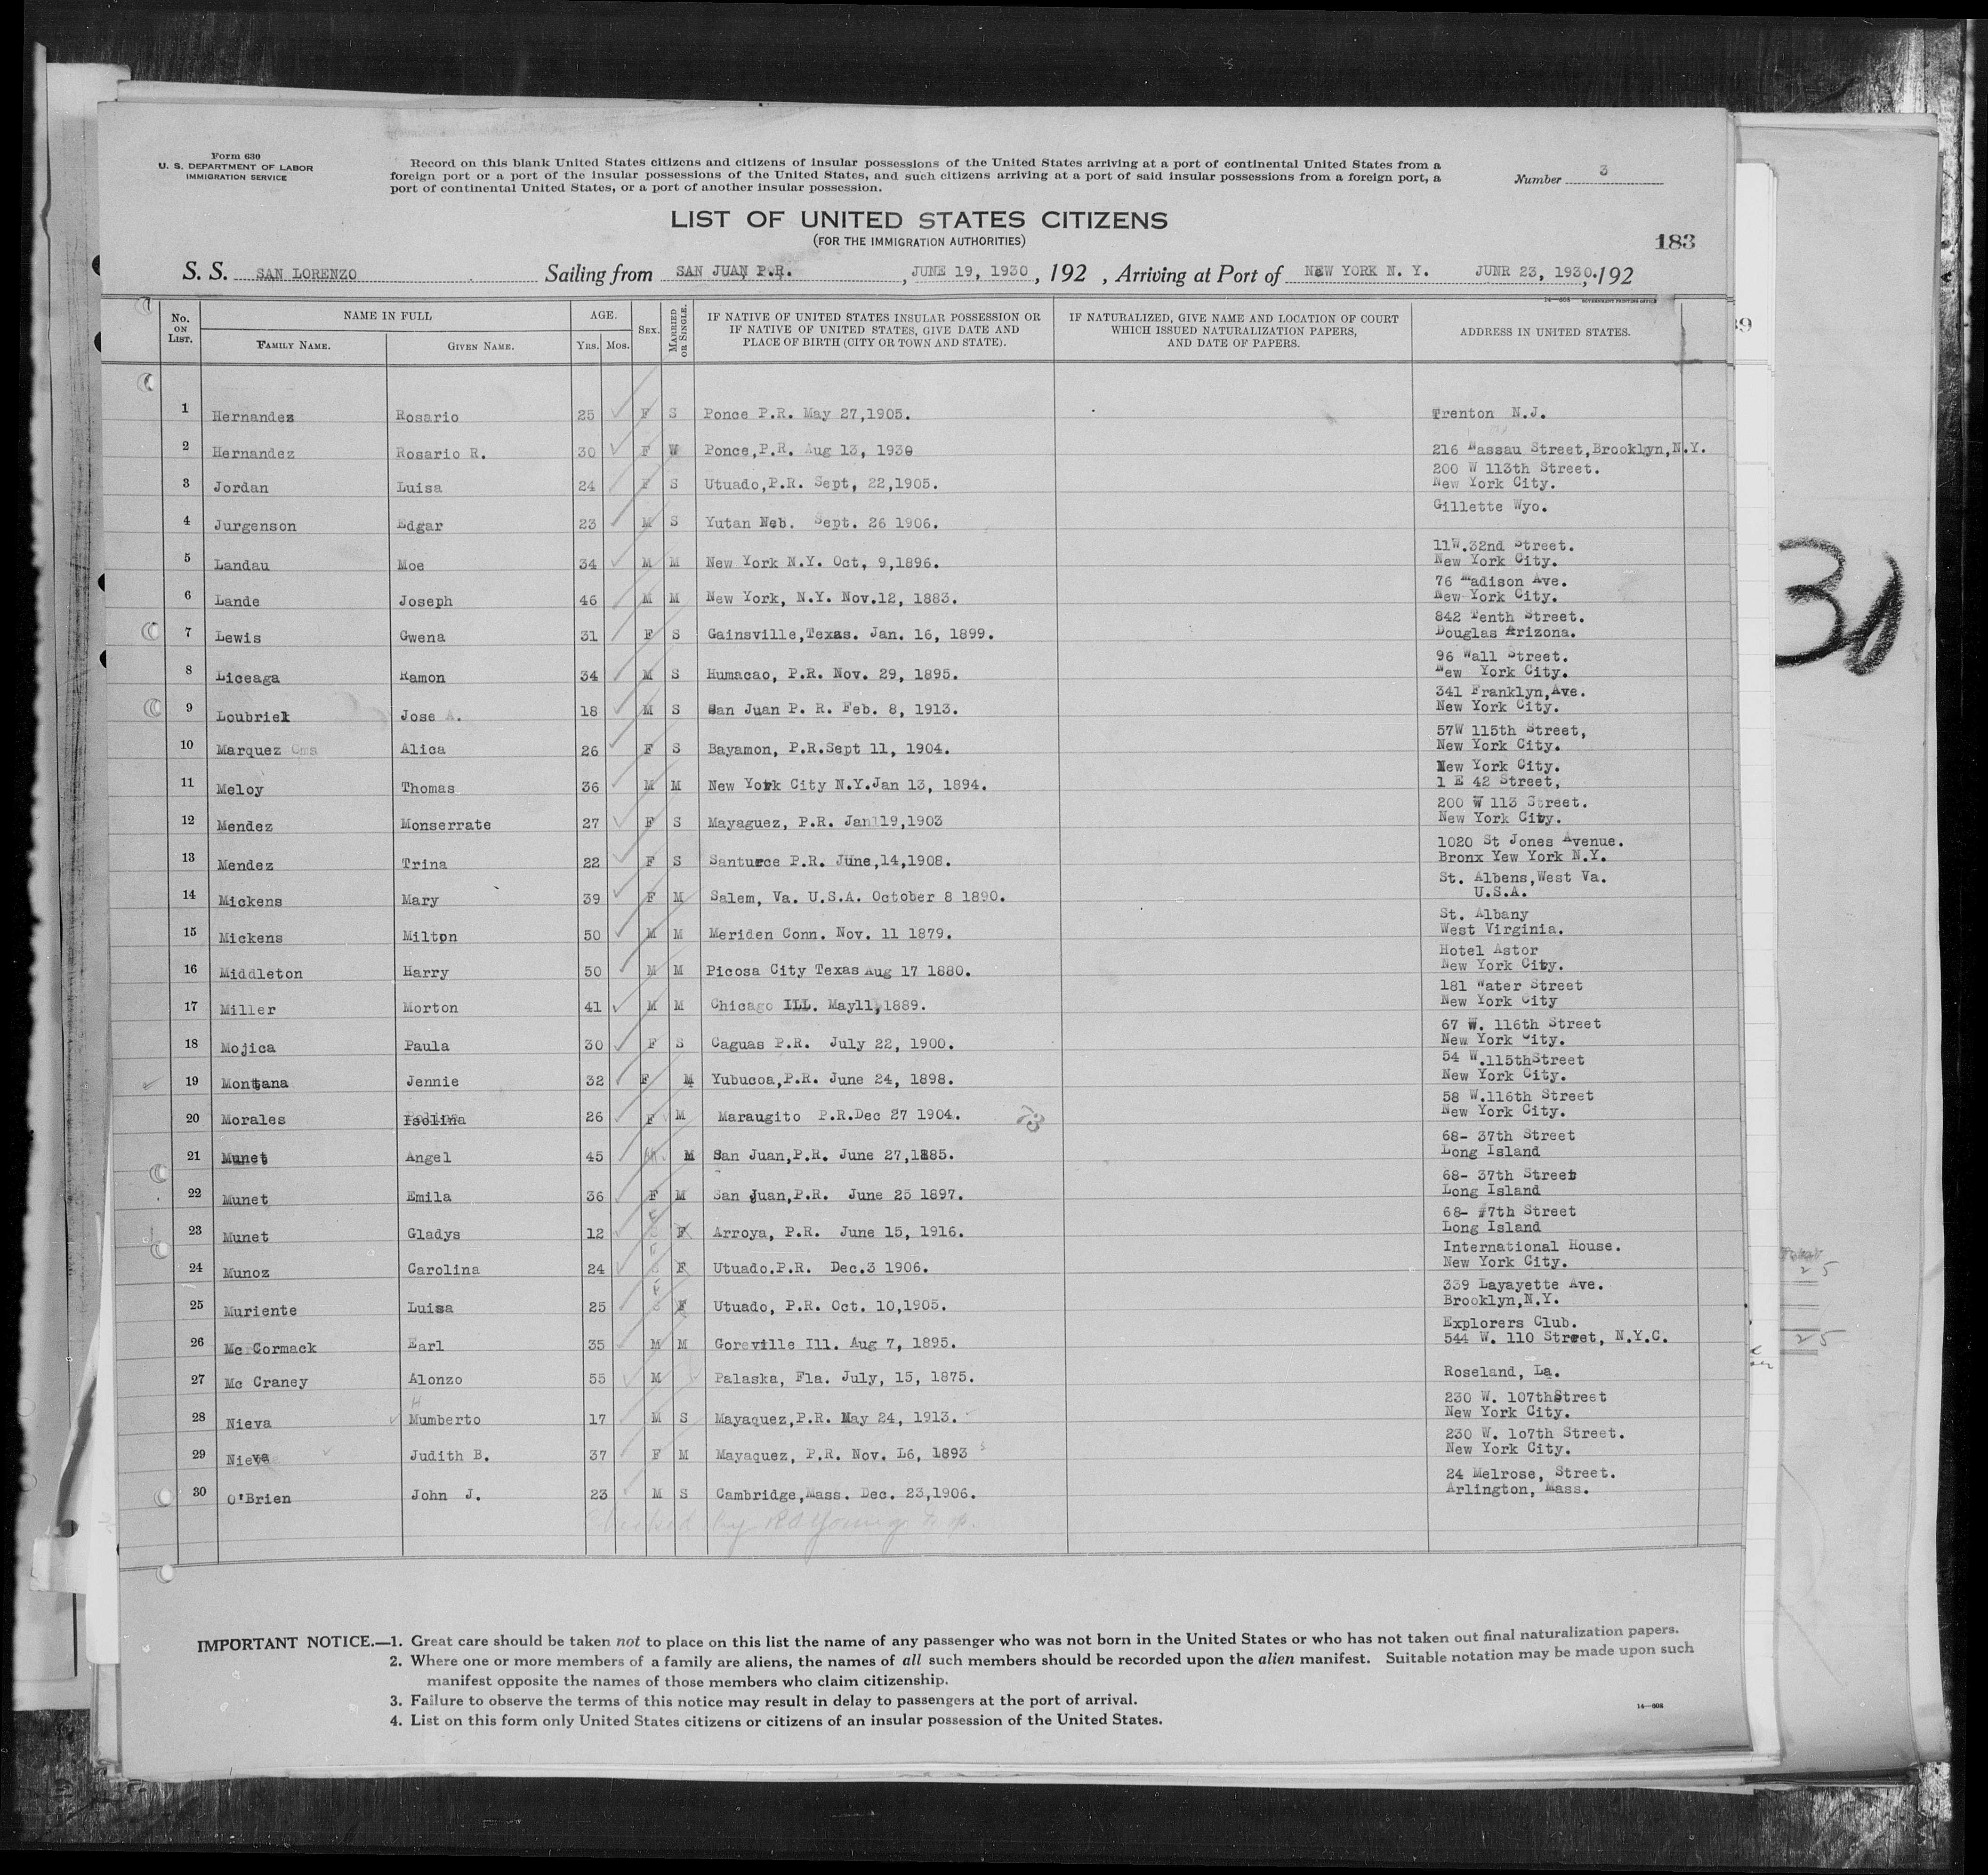 Form 630
U. S. DEPARTMENT OF LABOR
IMMIGRATION SERVICE
Record on this blank United States citizens and citizens of insular possessions of the United States arriving at a port of continental United States from a
foreign port or a port of the insular possessions of the United States, and such citizens arriving at a port of said insular possessions from a foreign port, a
port of continental United States, or a port of another insular possession.
Number 3
LIST OF UNITED STATES CITIZENS
(FOR THE IMMIGRATION AUTHORITIES)
183
S. S. SAN LORENZO Sailing from SAN JUAN P.R. , JUNE 19, 1930 , 192 , Arriving at Port of NEW YORK N. Y. JUNR 23, 1930. , 192
14—608 GOVERNMENT PRINTING OFFICE
No. ON LIST. NAME IN FULL AGE. SEX. MARRIED OR SINGLE. IF NATIVE OF UNITED STATES INSULAR POSSESSION OR IF NATIVE OF UNITED STATES, GIVE DATE AND PLACE OF BIRTH (CITY OR TOWN AND STATE). IF NATURALIZED, GIVE NAME AND LOCATION OF COURT WHICH ISSUED NATURALIZATION PAPERS, AND DATE OF PAPERS. ADDRESS IN UNITED STATES.
FAMILY NAME. GIVEN NAME. YRS. MOS.
1 Hernandez Rosario 25 F S Ponce P.R. May 27,1905. Trenton N.J.
2 Hernandez Rosario R. 30 F W Ponce,P.R. Aug 13, 1930 216 Nassau Street,Brooklyn,N.Y.
3 Jordan Luisa 24 F S Utuado,P.R. Sept, 22,1905. 200 W 113th Street. New York City.
4 Jurgenson Edgar 23 M S Yutan Neb. Sept. 26 1906. Gillette Wyo.
5 Landau Moe 34 M M New York N.Y. Oct, 9,1896. 11W.32nd Street. New York City.
6 Lande Joseph 46 M M New York, N.Y. Nov.12, 1883. 76 Madison Ave. New York City.
7 Lewis Gwena 31 F S Gainsville,Texas. Jan. 16, 1899. 842 Tenth Street. Douglas Arizona.
8 Liceaga Ramon 34 M S Humacao, P.R. Nov. 29, 1895. 96 Wall Street. New York City.
9 Loubriel Jose A. 18 M S San Juan P. R. Feb. 8, 1913. 341 Franklyn,Ave. New York City.
10 Marquez Oms Alica 26 F S Bayamon, P.R.Sept 11, 1904. 57W 115th Street, New York City.
11 Meloy Thomas 36 M M New York City N.Y.Jan 13, 1894. New York City. 1 E 42 Street,
12 Mendez Monserrate 27 F S Mayaguez, P.R. Jan 19,1903 200 W 113 Street. New York City.
13 Mendez Trina 22 F S Santurce P.R. June,14,1908. 1020 St Jones Avenue. Bronx Yew York N.Y.
14 Mickens Mary 39 F M Salem, Va. U.S.A. October 8 1890. St. Albens,West Va. U.S.A.
15 Mickens Milton 50 M M Meriden Conn. Nov. 11 1879. St. Albany West Virginia.
16 Middleton Harry 50 M M Picosa City Texas Aug 17 1880. Hotel Astor New York City.
17 Miller Morton 41 M M Chicago ILL. May11,1889. 181 Water Street New York City
18 Mojica Paula 30 F S Caguas P.R. July 22, 1900. 67 W. 116th Street New York City.
19 Montana Jennie 32 F M Yubucoa,P.R. June 24, 1898. 54 W.115thStreet New York City.
20 Morales Isolina 26 F M Maraugito P.R.Dec 27 1904. 58 W.116th Street New York City.
21 Munet Angel 45 M. M San Juan,P.R. June 27,1885. 68- 37th Street Long Island
22 Munet Emila 36 F M San Juan,P.R. June 25 1897. 68- 37th Street Long Island
23 Munet Gladys 12 F Arroya, P.R. June 15, 1916. 68- 37th Street Long Island
24 Munoz Carolina 24 F Utuado.P.R. Dec.3 1906. International House. New York City.
25 Muriente Luisa 25 F Utuado, P.R. Oct. 10,1905. 339 Layayette Ave. Brooklyn,N.Y.
26 Mc Cormack Earl 35 M M Goreville Ill. Aug 7, 1895. Explorers Club. 544 W. 110 Street, N.Y.C.
27 Mc Craney Alonzo 55 M Palaska, Fla. July, 15, 1875. Roseland, La.
28 Nieva Mumberto 17 M S Mayaquez,P.R. May 24, 1913. 230 W. 107thStreet New York City.
29 Nieva Judith B. 37 F M Mayaquez, P.R. Nov. L6, 1893 230 W. 1o7th Street. New York City.
30 O'Brien John J. 23 M S Cambridge,Mass. Dec. 23,1906. 24 Melrose, Street. Arlington, Mass.
IMPORTANT NOTICE.—1. Great care should be taken not to place on this list the name of any passenger who was not born in the United States or who has not taken out final naturalization papers.
2. Where one or more members of a family are aliens, the names of all such members should be recorded upon the alien manifest. Suitable notation may be made upon such
manifest opposite the names of those members who claim citizenship.
3. Failure to observe the terms of this notice may result in delay to passengers at the port of arrival.
4. List on this form only United States citizens or citizens of an insular possession of the United States.
14—608